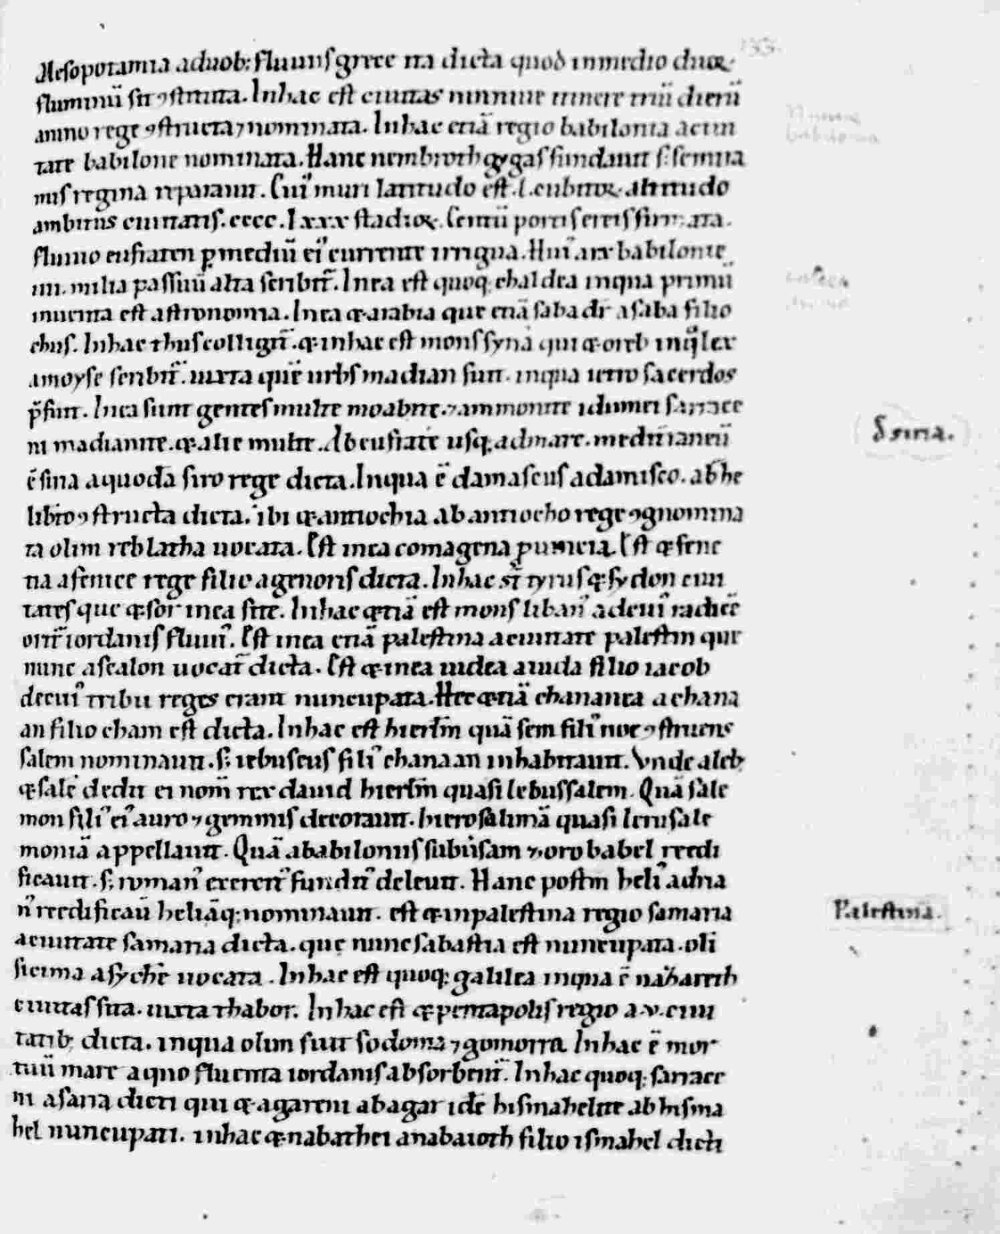 Mesopotamia a duob: fluuiis grece ita dicta quod in medio duoꝝ
fluminū sit ꝯstituta. Inhac est ciuitas niniue itinere triū dierū
a nino rege ꝯstructa ⁊ nominata. In hac etiā regio babilonia a ciui
tate babilone nominata. Hanc nembroth gygas fundauit sꝫ semira
mis regina reparauit. Cui᾽ muri latitudo est .l. cubitoꝝ. altitudo
ambitus ciuitatis. cccc. lxxx stadioꝝ. Centū portis erreis firmata.
fluuio eufraten ꝑ mediū ei᾽ currente irrigua. Hui᾽ arx babilonie
iiii. milia passuū alta scribit᷑. In ea est quoqꝫ chaldea in qua primū
inuenta est astronomia. In ea ⁊ arabia que etiā saba dr̄ a saba filio
chus. In hac thus colligit᷑. ⁊ in hac est mons syna qui ⁊ oreb in q̊ lex
a moyse scribit᷑. iuxta quē urbs madian fuit. in qua ietro sacerdos
p̄fuit. In ea sunt gentes multe moabite. ⁊ ammonite idumei sarrace
ni madianite. ⁊ alie multe. Ab eufrate usqꝫ ad mare. mediterraneū
ē siria a quodā siro rege dicta. In qua ē damascus a damisco. abrahe
libto ꝯstructa dicta. ibi ⁊ antiochia ab antiocho rege ꝯgnomina
ta olim reblatha uocata. Est in ea comagena ꝓuincia. Est ⁊ feni
cia a fenice rege filio agenoris dicta. In hac st̄ tyrus ⁊ sydon ciui
tates que ⁊ sor in ea site. In hac ⁊ etiā est mons liban᾽ ad cui᾽ radicē
orit᷑ iordanis fluui᾽. Est in ea etiā palestina a ciuitate palestin que
nunc ascalon uocat᷑ dicta. Est ⁊ in ea iudea a iuda filio iacob
de cui᾽ tribu reges erant nuncupata. Hec ⁊ etiā chananea a chana
an filio cham est dicta. In hac est hierlm̄ quā sem fili᾽ noe ꝯstruens
salem nominauit. sꝫ iebuseus fili᾽ chanaan inhabitauit. Vnde a iebꝫ
⁊ salē dedit ei nom̄ rex dauid hierlm̄ quasi iebussalem. Quā salo
mon fili᾽ ei᾽ auro ⁊ gemmis decorauit. hierosolimā quasi ierusalo
moniā appellauit. Quā a babiloniis subūsam zorobabel reedi
ficauit. sꝫ roman᾽ exercit᾽ fundit᾽ deleuit. Hanc postm̄ heli᾽ adria
n᾽ reedificauī heliāqꝫ nominauit. est ⁊ in palestina regio samaria
a ciuitate samaria dicta. que nunc sabastia est nuncupata. oli
sicima a sychē uocata. In hac est quoqꝫ galilea in qua ē nazareth
ciuitas sita. iuxta thabor. In hac est ⁊ pentapolis regio a .v. ciui
tatibꝫ dicta. in qua olim fuit sodoma ⁊ gomorra. In hac ē mor
tuū mare a quo fluenta iordanis absorbent᷑. In hac quoqꝫ sarrace
ni a sarra dicti qui ⁊ agareni ab agar idē hismahelite ab hisma
hel nuncupati. in hac ⁊ nabathei a nabaioth filio ismahel dicti
Siria.
Palestina.